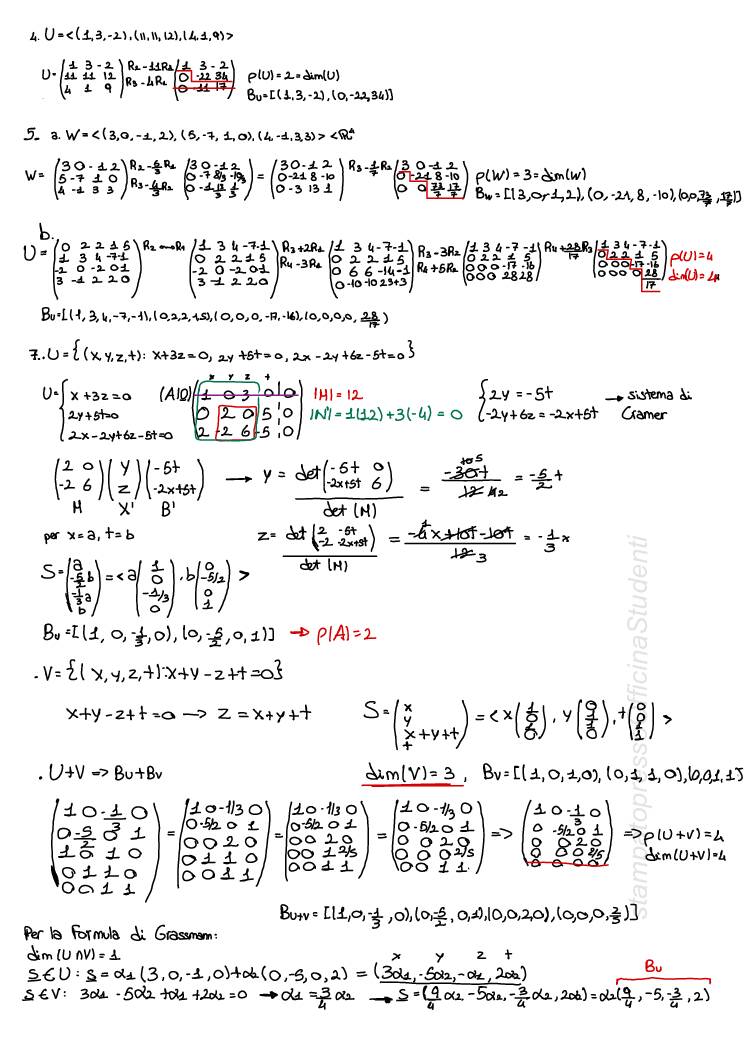 4. U = <(1,3,-2), (11,11,12), (4,1,9)>
U = (1 3 -2 / 11 11 12 / 4 1 9) R2-11R1 R3-4R1 (1 3 -2 / 0 -22 34 / 0 -11 17) ρ(U)=2=dim(U)
Bu=[(1,3,-2),(0,-22,34)]
5. a. W = <(3,0,-1,2), (5,-7,1,0), (4,-1,3,3)> < R⁴
W = (3 0 -1 2 / 5 -7 1 0 / 4 -1 3 3) R2-5/3R1 R3-4/3R1 (3 0 -1 2 / 0 -7 8/3 -10/3 / 0 -1 13/3 1/3) = (3 0 -1 2 / 0 -21 8 -10 / 0 -3 13 1) R3-1/7R2 (3 0 -1 2 / 0 -21 8 -10 / 0 0) ρ(W)=3=dim(W)
b.
U = (0 2 2 1 5 / 1 3 4 -7 -1 / -2 0 -2 0 1 / 3 -1 2 2 0) R2↔R1 (1 3 4 -7 -1 / 0 2 2 1 5 / -2 0 -2 0 1 / 3 -1 2 2 0) R3+2R1 R4-3R1 (1 3 4 -7 -1 / 0 2 2 1 5 / 0 6 6 -14 -1 / 0 -10 -10 23 +3) R3-3R2 R4+5R2 (1 3 4 -7 -1 / 0 2 2 1 5 / 0 0 0 -17 -16 / 0 0 0 28 28) (1 3 4 -7 -1 / 0 2 2 1 5 / 0 0 0 -17 -16 / 0 0 0 0 28/17) ρ(U)=4
dim(U)=4
Bu=[(1,3,4,-7,-1),(0,2,2,1,5),(0,0,0,-17,-16),(0,0,0,0,28/17)
7. .U = {(x,y,z,t): x+3z=0, 2y+5t=0, 2x-2y+6z-5t=0}
x y z t
U = { x+3z=0 / 2y+5t=0 / 2x-2y+6z-5t=0 (A|0) (1 0 3 0 0 / 0 2 0 5 0 / 2 -2 6 -5 0) |H|=12
|N'|=1(12)+3(-4)=0
{ 2y=-5t / -2y+6z=-2x+5t → sistema di Cramer
(2 0 / -2 6) (y / z) (-5t / -2x+5t) → y = det(-5t 0 / -2x+5t 6) / det(M) = -30t / 12 = -5/2 t
M X' B'
per x=a, t=b
z = det(2 -5t / -2 -2x+5t) / det(M) = -4x+10t-10t / 12 3 = -1/3 x
S = (a / -5/2 b / -1/3 a / b) = <a(1 / 0 / -1/3 / 0), b(0 / -5/2 / 0 / 1)>
Bu=[(1,0,-1/3,0),(0,-5/2,0,1)] → ρ(A)=2
.V={(x,y,z,t):x+y-z+t=0}
x+y-z+t=0 → z=x+y+t S = (x / y / x+y+t / t) = <x(1 / 0 / 1 / 0), y(0 / 1 / 1 / 0), t(0 / 0 / 1 / 1)>
. U+V => Bu+Bv dim(V)=3, Bv=[(1,0,1,0),(0,1,1,0),(0,0,1,1]
(1 0 -1/3 0 / 0 -5/2 0 1 / 1 0 1 0 / 0 1 1 0 / 0 0 1 1) = (1 0 -1/3 0 / 0 -5/2 0 1 / 0 0 2 0 / 0 1 1 0 / 0 0 1 1) = (1 0 -1/3 0 / 0 -5/2 0 1 / 0 0 2 0 / 0 0 1 2/5 / 0 0 1 1) = (1 0 -1/3 0 / 0 -5/2 0 1 / 0 0 2 0 / 0 0 0 2/5 / 0 0 1 1) => (1 0 -1/3 0 / 0 -5/2 0 1 / 0 0 2 0 / 0 0 0 2/5 / 0 0 0 0) => ρ(U+V)=4
dim(U+V)=4
Per la Formula di Grassmann:
dim(U∩V)=1
x y z t
s∈U: s=α1(3,0,-1,0)+α2(0,-5,0,2) = (3α1,-5α2,-α1,2α2)
Bu
s∈V: 3α1-5α2+α1+2α2=0 → α1=3/4α2 → s=(9/4α2-5α2,-3/4α2,2α2)=α2(9/4,-5,-3/4,2)